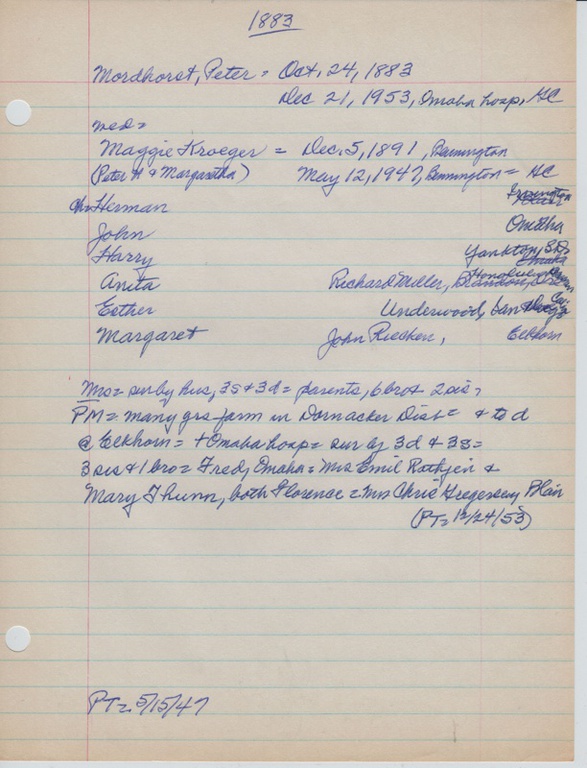 1883
Mordhorst, Peter = Oct. 24, 1883
Dec 21, 1953, Omaha hosp, HC
med =
Maggie Kroeger = Dec. 5, 1891, Bennington
(Peter H & Margaretha) May 12, 1947, Bennington = HC
Irvington
Ch = Herman
John Omaha
Harry Yankton, S.D.
Anita Richard Miller,
Esther Underwood, San
Margaret John Riecken, Elkhorn
Mrs = sur by hus, 3s & 3d = parents, 6 bro & 2 sis =
PM = many yrs farm in Dornacker Dist = & to d
@ Elkhorn = + Omaha hosp = sur by 3d & 3s =
3 sis & 1 bro = Fred, Omaha = Mrs Emil Rathjen &
Mary Thunn, both Florence = Mrs Chris Gregersen, Blair
(PT = 12/24/53)
PT = 5/15/47